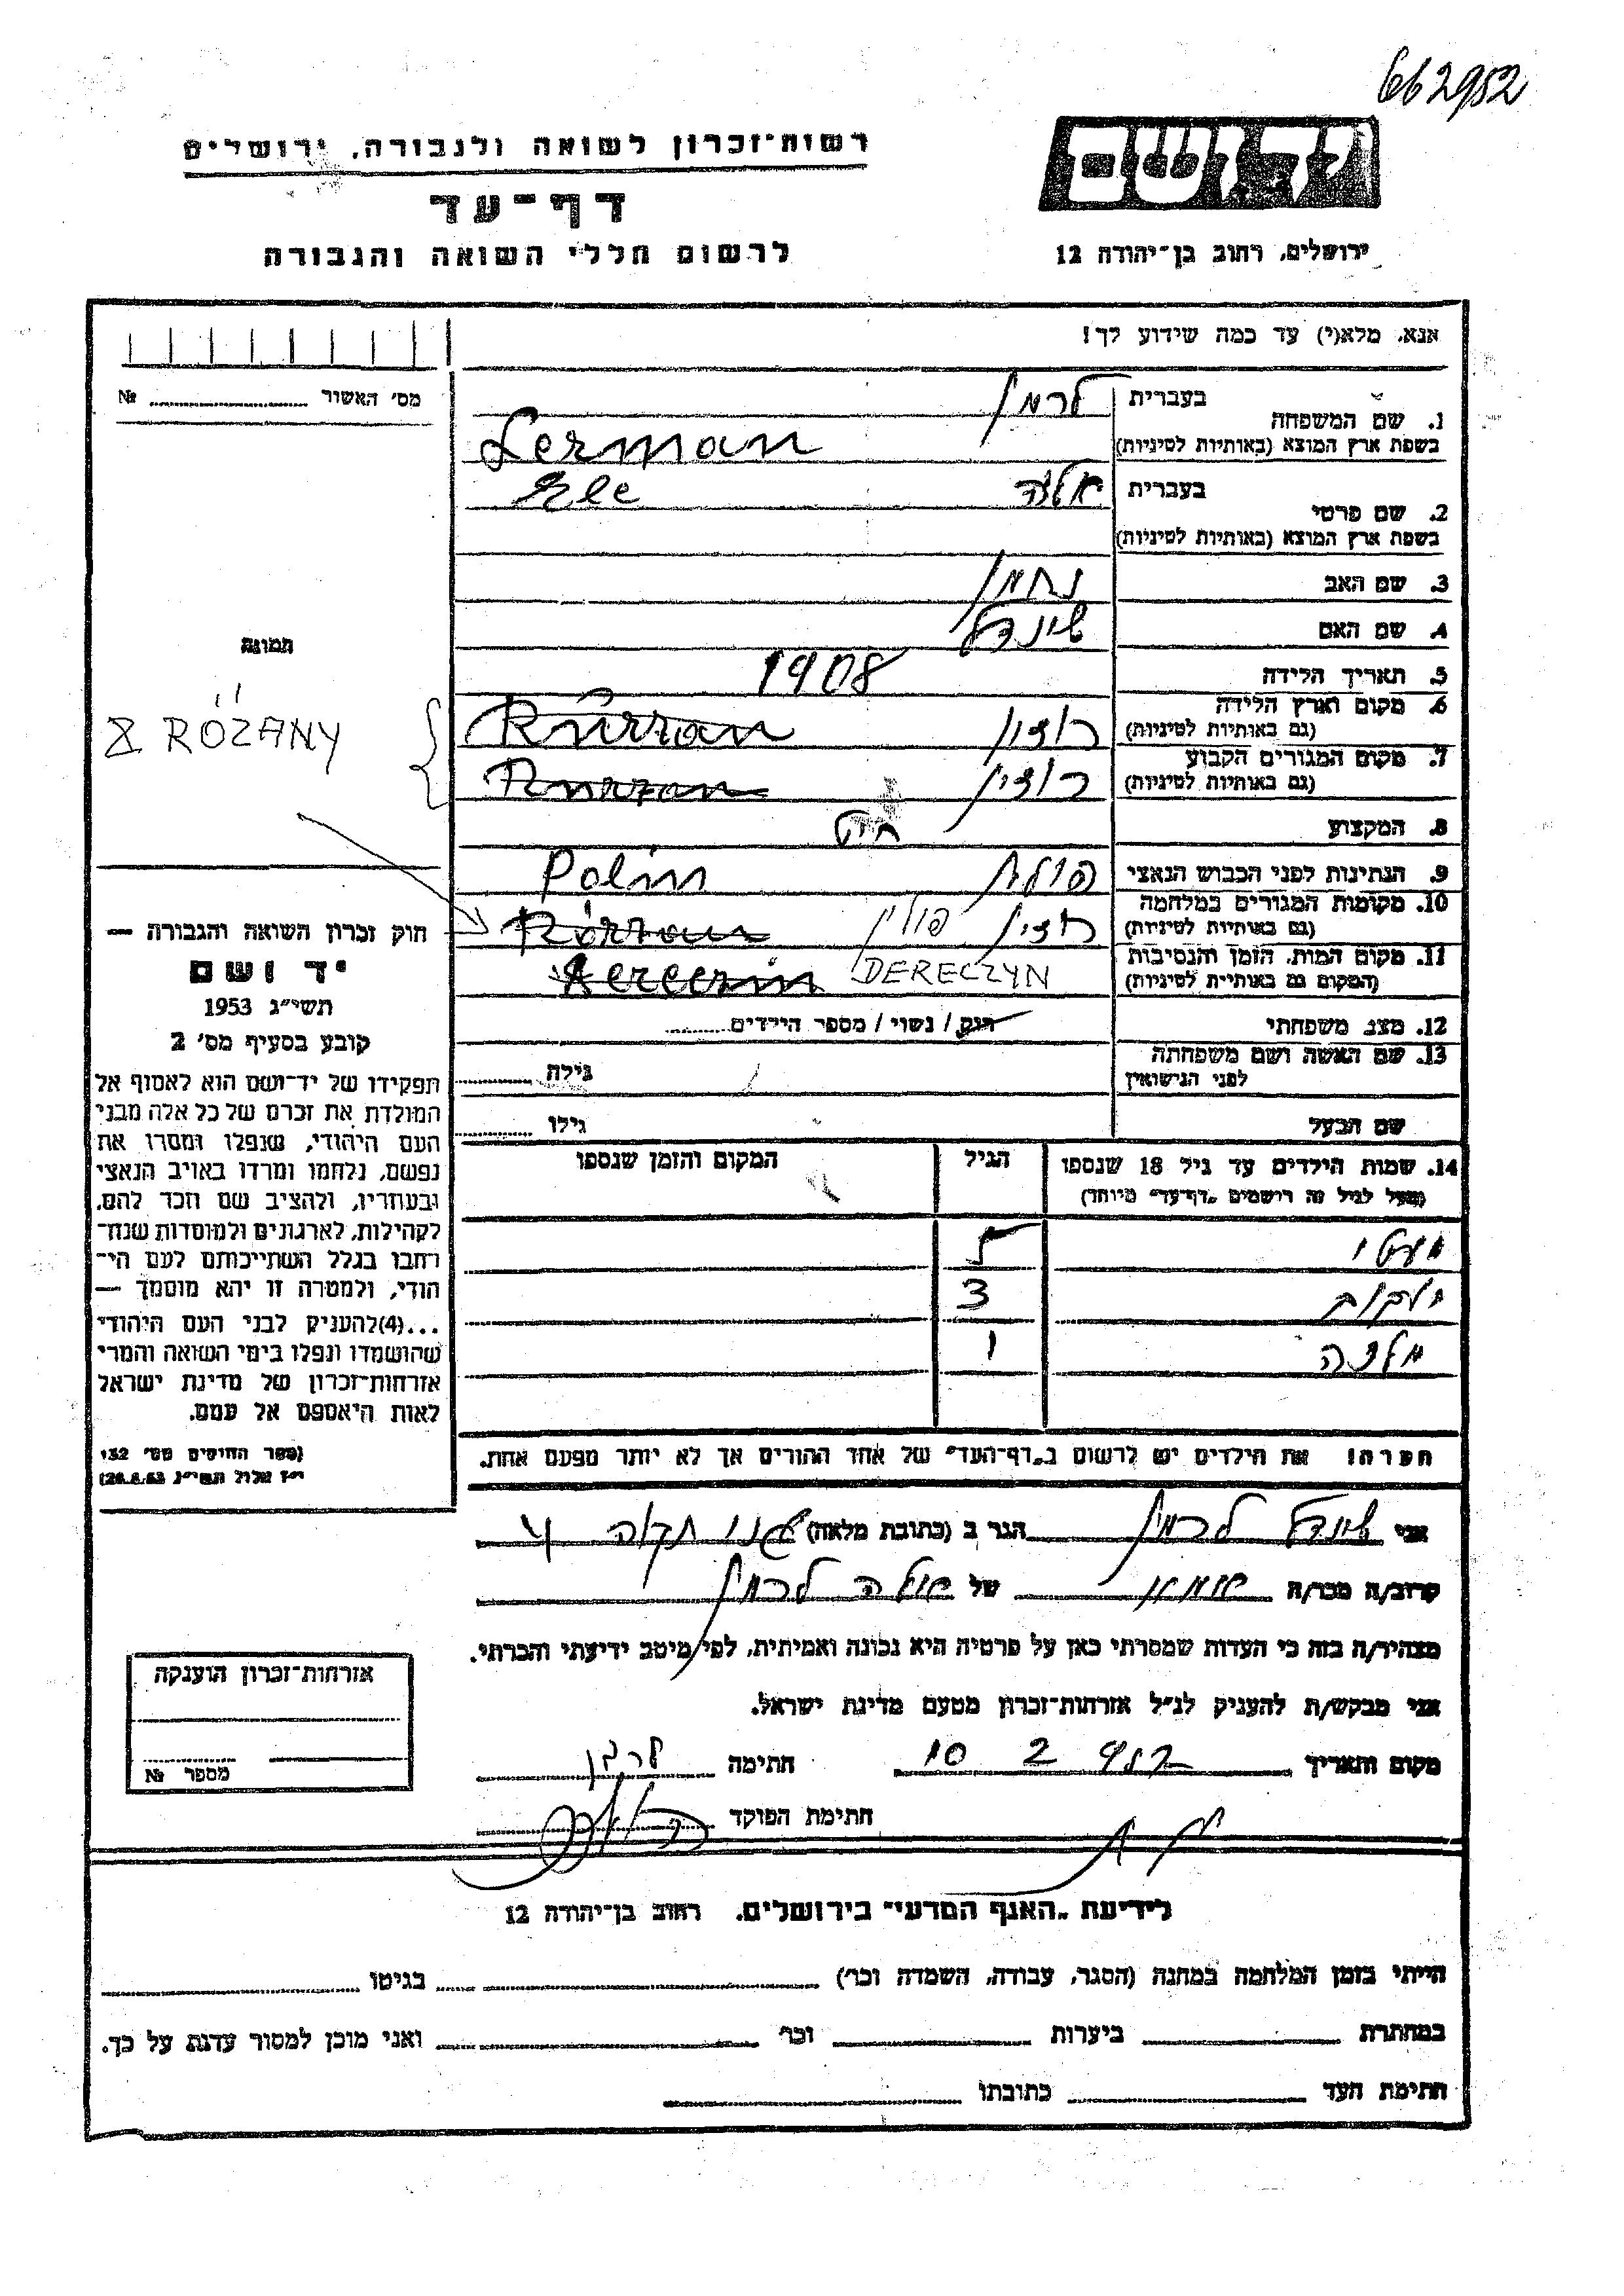 662952
רשות־זכרון לשואה ולגבורה, ירושלים
יד ושם
דף־עד
לרשום חללי השואה והגבורה
ירושלים, רחוב בן־יהודה 12
אנא, מלא(י) עד כמה שידוע לך!
מס׳ האשור № 
1. שם המשפחה
בעברית לרמן
בשפת ארץ המוצא (באותיות לטיניות) Lerman
2. שם פרטי
בעברית
בשפת ארץ המוצא (באותיות לטיניות) Ele
3. שם האב נחמן
4. שם האם שיינדל
5. תאריך הלידה 1908
6. מקום וארץ הלידה
(גם באותיות לטיניות) רוזין Rurzan
7. מקום המגורים הקבוע
(גם באותיות לטיניות) רוזין Rurzan
תמונה
RÓZANY
8. המקצוע חייט
9. הנתינות לפני הכבוש הנאצי פולנית Polin
10. מקומות המגורים במלחמה
(גם באותיות לטיניות) רוזין פולין
11. מקום המות, הזמן והנסיבות
(המקום גם באותיות לטיניות) DERECZYN
12. מצב משפחתי רווק / נשוי / מספר הילדים
13. שם האשה ושם משפחתה
לפני הנישואין גילה
שם הבעל גילו
14. שמות הילדים עד גיל 18 שנספו
(מעל לגיל זה רושמים "דף־עד" מיוחד)
הגיל
המקום והזמן שנספו
5
יעקב 3
מלכה 1
הערה! את הילדים יש לרשום ב"דף־העד" של אחד ההורים אך לא יותר מפעם אחת.
חוק זכרון השואה והגבורה —
יד ושם
תשי״ג 1953
קובע בסעיף מס׳ 2
תפקידו של יד־ושם הוא לאסוף אל
המולדת את זכרם של כל אלה מבני
העם היהודי, שנפלו ומסרו את
נפשם, נלחמו ומרדו באויב הנאצי
ובעוזריו, ולהציב שם וזכר להם,
לקהילות, לארגונים ולמוסדות שנח־
רבו בגלל השתייכותם לעם הי־
הודי, ולמטרה זו יהא מוסמך —
...(4) להעניק לבני העם היהודי
שהושמדו ונפלו בימי השואה והמרי
אזרחות־זכרון של מדינת ישראל
לאות היאספם אל עמם.
(ספר החוקים מס׳ 132,
י״ז אלול תשי״ג 28.8.53)
אני שיינדל לרמן הגר ב (כתובת מלאה) תקוה
קרוב/ה מכר/ה אמא של לרמן
מצהיר/ה בזה כי העדות שמסרתי כאן על פרטיה היא נכונה ואמיתית, לפי מיטב ידיעתי והכרתי.
אני מבקש/ת להעניק לנ״ל אזרחות־זכרון מטעם מדינת ישראל.
מקום ותאריך 10 2 חתימה לרמן
חתימת הפוקד
אזרחות־זכרון הוענקה
מספר №
לידיעת "האגף המדעי" בירושלים, רחוב בן־יהודה 12
הייתי בזמן המלחמה במחנה (הסגר, עבודה, השמדה וכו׳) בגיטו
במחתרת ביערות וכו׳ ואני מוכן למסור עדות על כך.
חתימת העד כתובתו